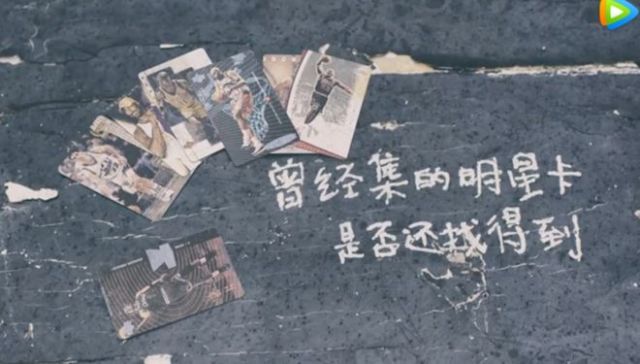 曾经集的明星卡
是否还找得到